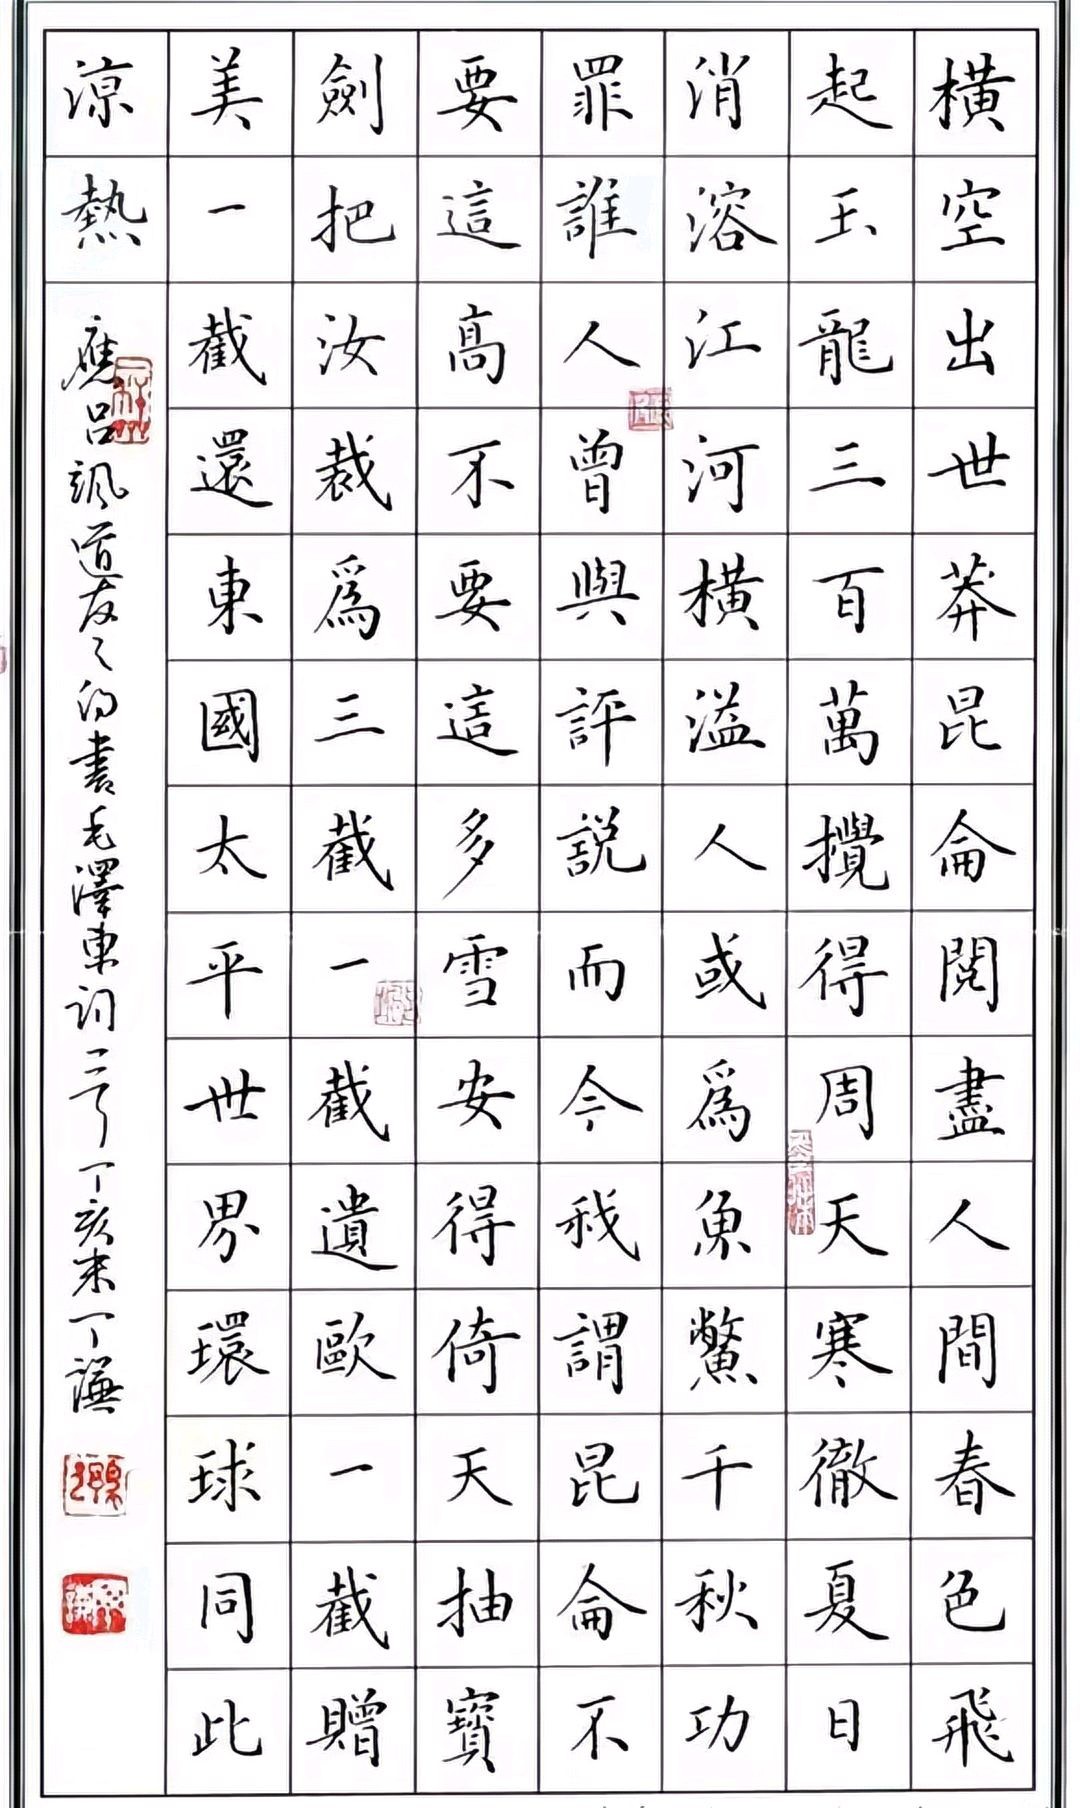 橫空出世莽昆侖閱盡人間春色飛
起玉龍三百萬攪得周天寒徹夏日
消溶江河橫溢人或為魚鱉千秋功
罪誰人曾與評說而今我謂昆侖不
要這高不要這多雪安得倚天抽寶
劍把汝裁為三截一截遺歐一截贈
美一截還東國太平世界環球同此
涼熱
應呂颯道友之約書毛澤東詞一首丁亥末丁謙